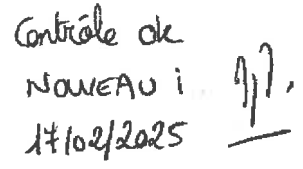 Contrôle ok
NOUVEAU i
17/02/2025